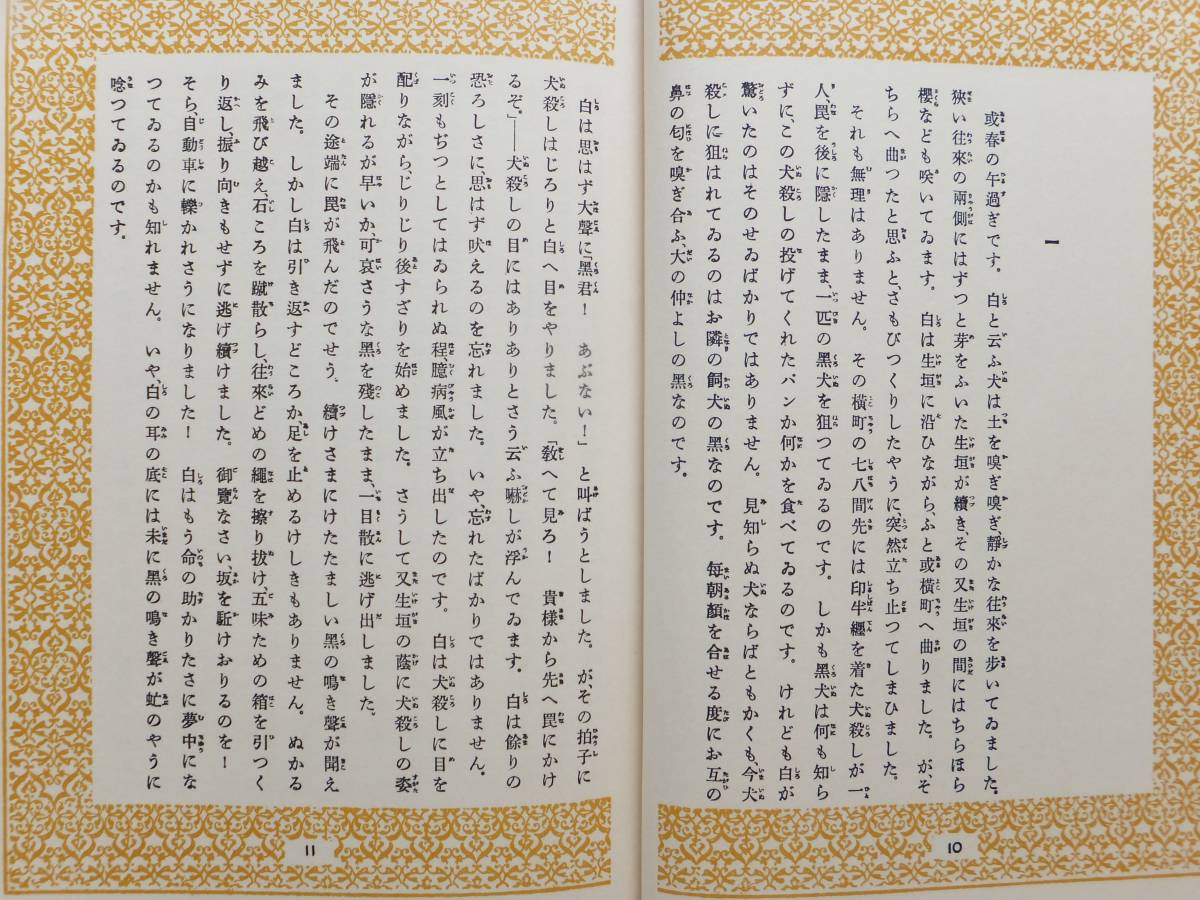 一
或春の午過ぎです。 白と云ふ犬は土を嗅ぎ嗅ぎ、靜かな往來を歩いてゐました。
狹い往來の兩側にはずつと芽をふいた生垣が續き、その又生垣の間にはちらほら
櫻なども咲いてゐます。 白は生垣に沿ひながら、ふと或横町へ曲りました。 が、そ
ちらへ曲つたと思ふと、さもびつくりしたやうに、突然立ち止つてしまひました。
それも無理はありません。 その横町の七八間先には印半纏を着た犬殺しが一
人、罠を後に隱したまま、一匹の黒犬を狙つてゐるのです。 しかも黒犬は何も知ら
ずに、この犬殺しの投げてくれたパンか何かを食べてゐるのです。 けれども白が
驚いたのはそのせゐばかりではありません。 見知らぬ犬ならばともかくも、今犬
殺しに狙はれてゐるのはお隣の飼犬の黒なのです。 毎朝顏を合せる度にお互の
鼻の匂を嗅ぎ合ふ、大の仲よしの黒なのです。
10
白は思はず大聲に「黒君！ あぶない！」と叫ばうとしました。 が、その拍子に
犬殺しはじろりと白へ目をやりました。 「敎へて見ろ！ 貴樣から先へ罠にかけ
るぞ。」――犬殺しの目にはありありとさう云ふ嚇しが浮んでゐます。 白は餘りの
恐ろしさに、思はず吠えるのを忘れました。 いや、忘れたばかりではありません。
一刻もぢつとしてはゐられぬ程、臆病風が立ち出したのです。 白は犬殺しに目を
配りながら、じりじり後すざりを始めました。 さうして又生垣の蔭に犬殺しの姿
が隱れるが早いか、可哀さうな黒を殘したまま、一目散に逃げ出しました。
その途端に罠が飛んだのでせう。 續けさまにけたたましい黒の鳴き聲が聞え
ました。 しかし白は引き返すどころか、足を止めるけしきもありません。 ぬかる
みを飛び越え、石ころを蹴散らし、往來どめの繩を擦り拔け、五味ための箱を引つく
り返し、振り向きもせずに逃げ續けました。 御覽なさい、坂を駈けおりるのを！
そら、自動車に轢かれさうになりました！ 白はもう命の助かりたさに夢中にな
つてゐるのかも知れません。 いや、白の耳の底には未に黒の鳴き聲が虻のやうに
唸つてゐるのです。
11